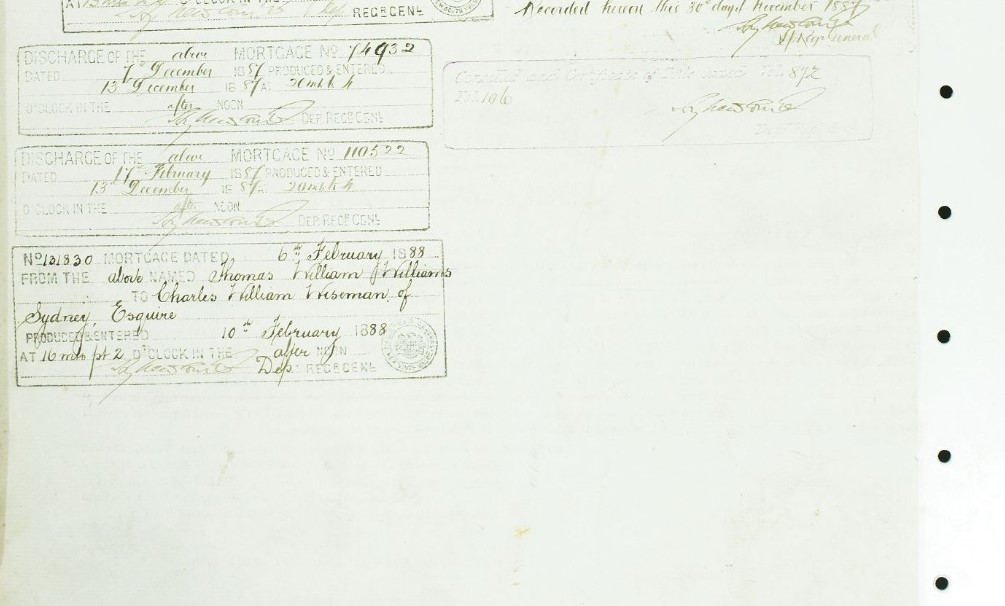 O'CLOCK IN THE
REG<sup>R</sup> GEN<sup>L</sup>
Recorded hereon this 30th day of November 1887
DISCHARGE OF THE above MORTGAGE No 74932
DATED 7th December 1887 PRODUCED & ENTERED
13th December 1887 AT 20 m to 4
O'CLOCK IN THE after NOON
DEP REG GENL
DISCHARGE OF THE above MORTGAGE No 110522
DATED 17th February 1887 PRODUCED & ENTERED
13th December 1887 AT 20 m to 4
O'CLOCK IN THE after NOON
DEP REG GENL
No 131830 MORTGAGE DATED 6th February 1888
FROM THE above NAMED Thomas William J Williams
TO Charles William Wiseman of
Sydney, Esquire
PRODUCED & ENTERED 10th February 1888
AT 16 mts pt 2 O'CLOCK IN THE after NOON
Dep: REG GENL
Cancelled and Certificate of Title issued Vol. 872
Fol. 106